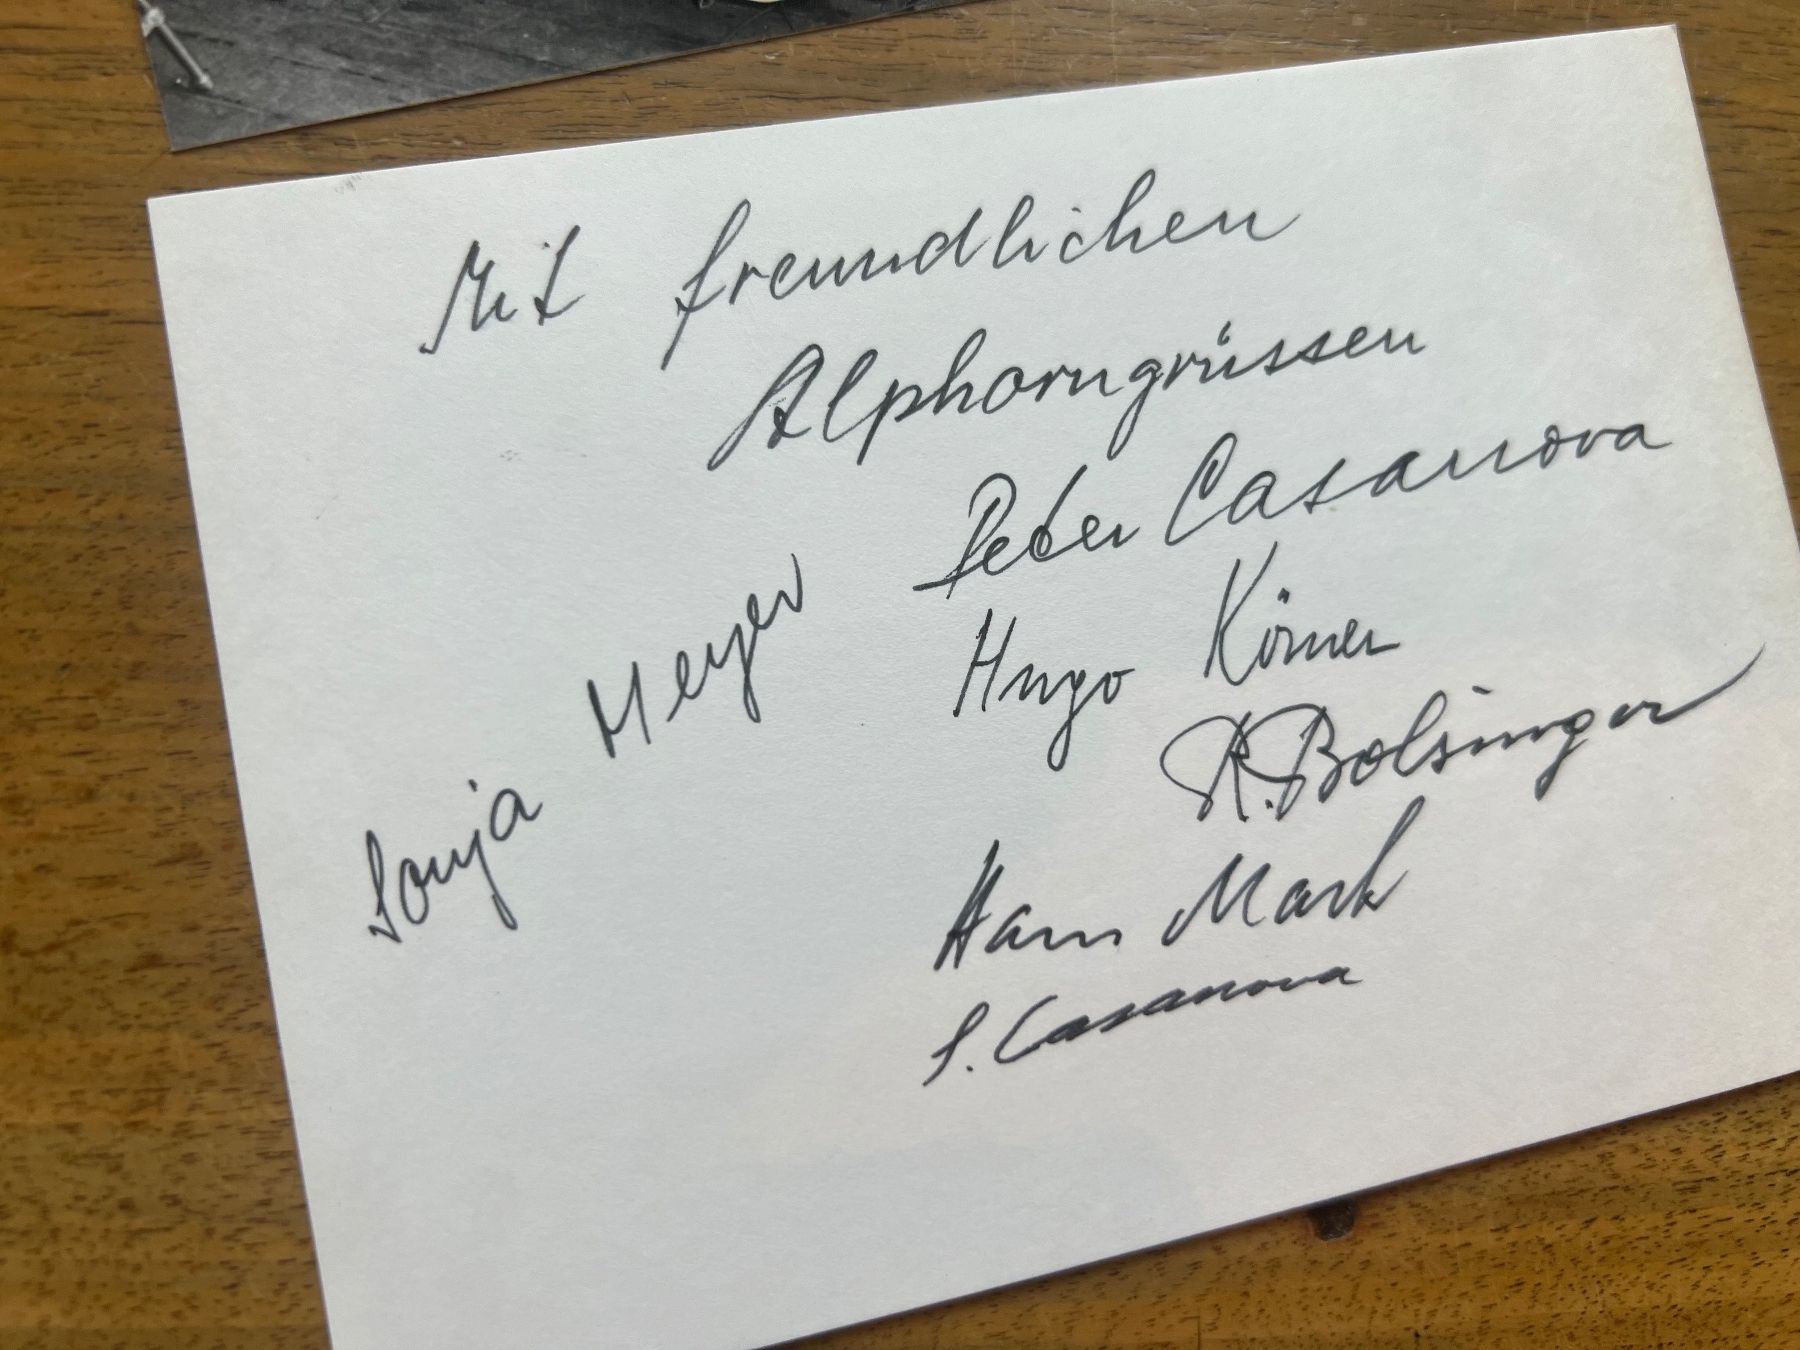 Mit freundlichen
Alphorngrüssen
Peter Casanova
Sonja Meyer
Hugo Körner
R. Bolsinger
Hans Mark
S. Casanova